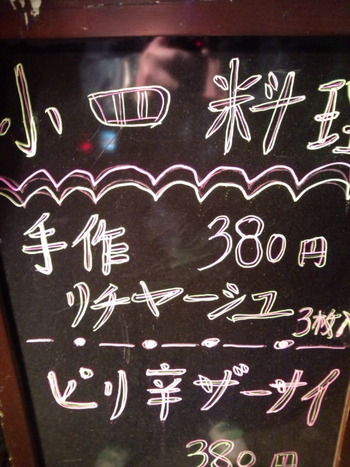 小皿料理
手作 380円
リチャージュ
3枚入
ピリ辛ザーサイ
380円